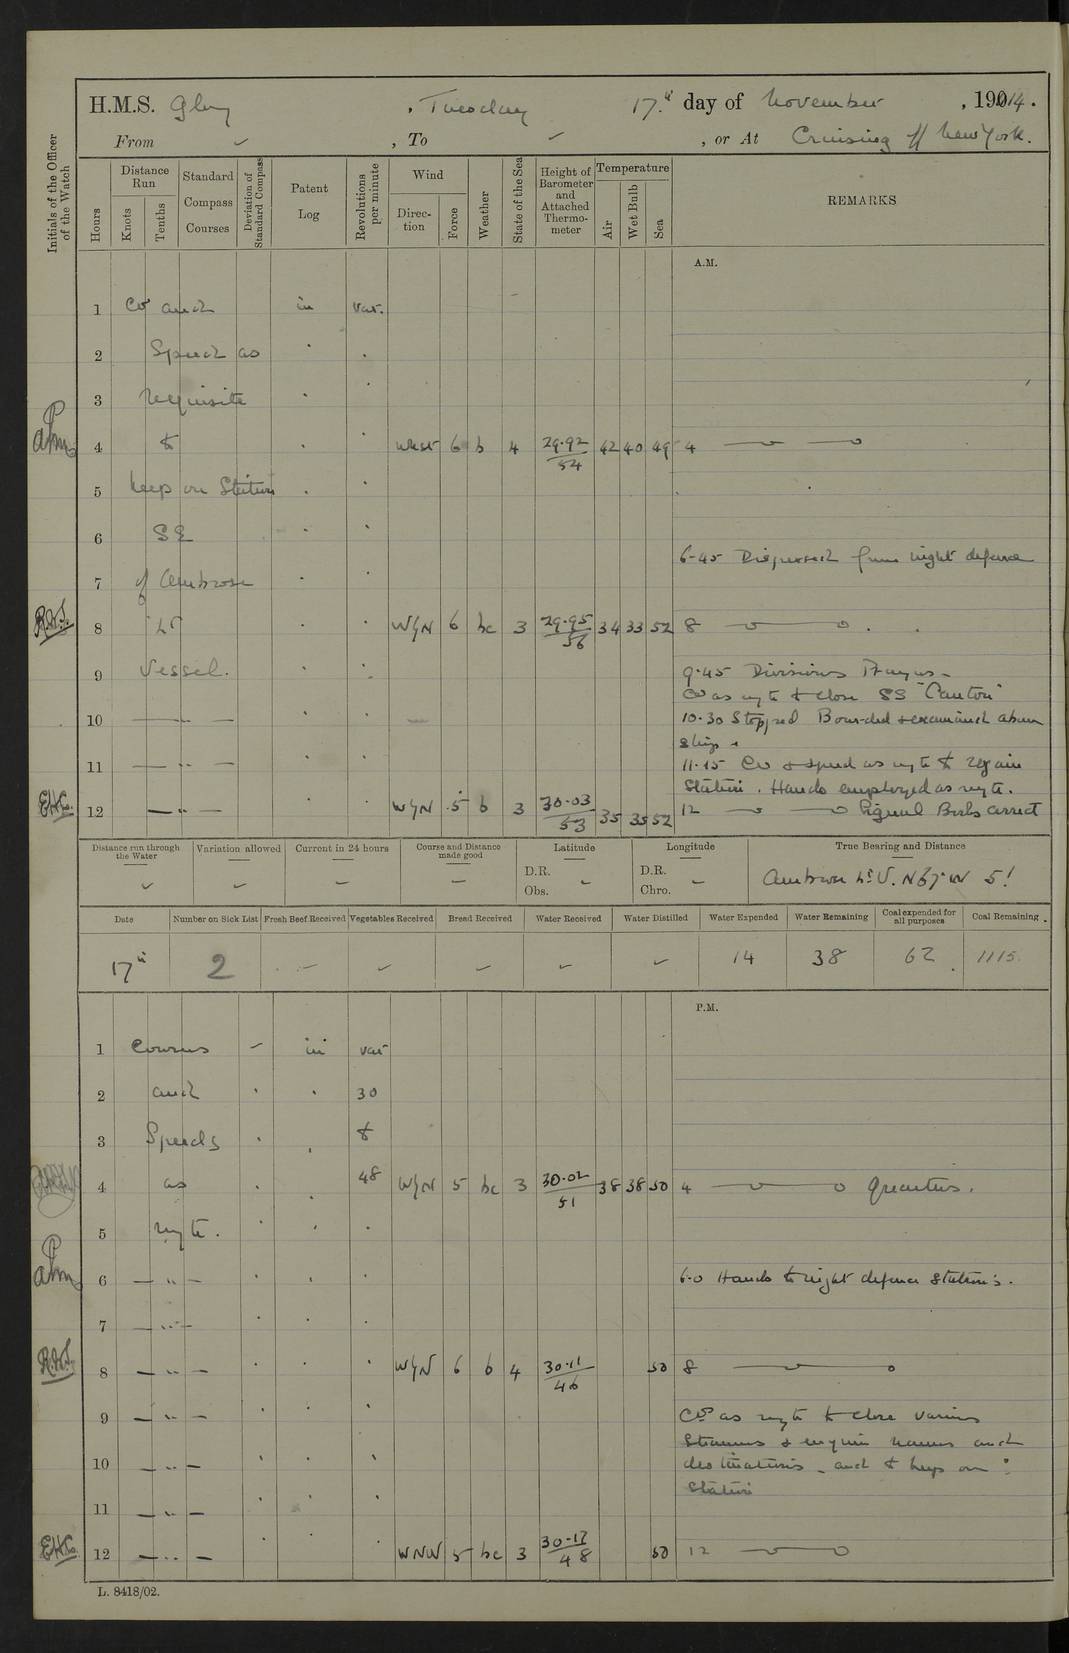 H.M.S. Glory, Tuesday 17.th day of November, 1914.
From ✓, To ✓, or At Cruising off New York.
Initials of the Officer of the Watch
Hours
Distance Run
Knots
Tenths
Standard Compass Courses
Deviation of Standard Compass
Patent Log
Revolutions per minute
Wind
Direction
Force
Weather
State of the Sea
Height of Barometer and Attached Thermometer
Temperature
Air
Wet Bulb
Sea
REMARKS
A.M.
1 Co and in var.
2 Speed as
3 requisite
4 to West 6 b 4 29.92/54 42 40 49 4
5 keep on Station
6 SE
6-45 Dispersed from night defence
7 of Ambrose
8 Lt WyN 6 bc 3 29.95/56 34 33 52 8
9 Vessel.
9.45 Divisions Prayers.
Co as reqte to close SS "Canton"
10 10.30 Stopped Boarded & examined above
ship.
11 11.15 Co & speed as reqte to regain
Station. Hands employed as reqte.
12 WyN 5 b 3 30.03/53 35 35 52 12 Signal Books correct
Distance run through the Water
Variation allowed
Current in 24 hours
Course and Distance made good
Latitude
D.R.
Obs.
Longitude
D.R.
Chro.
True Bearing and Distance
Ambrose Lt V. NbyW 5'
Date
Number on Sick List
Fresh Beef Received
Vegetables Received
Bread Received
Water Received
Water Distilled
Water Expended
Water Remaining
Coal expended for all purposes
Coal Remaining
17th 2 14 38 62 1115
P.M.
1 Courses in var
2 and 30
3 Speeds &
4 as 48 WyN 5 bc 3 30.02/51 38 38 50 4 Quarters.
5 reqte.
6 6.0 Hands to night defence stations.
7
8 WyN 6 b 4 30.11/46 50 8
9 Cos as reqte to close various
Steamers & enquire names and
10 destinations and to keep on
Station
11
12 WNW 5 bc 3 30.17/48 50 12
L. 8418/02.